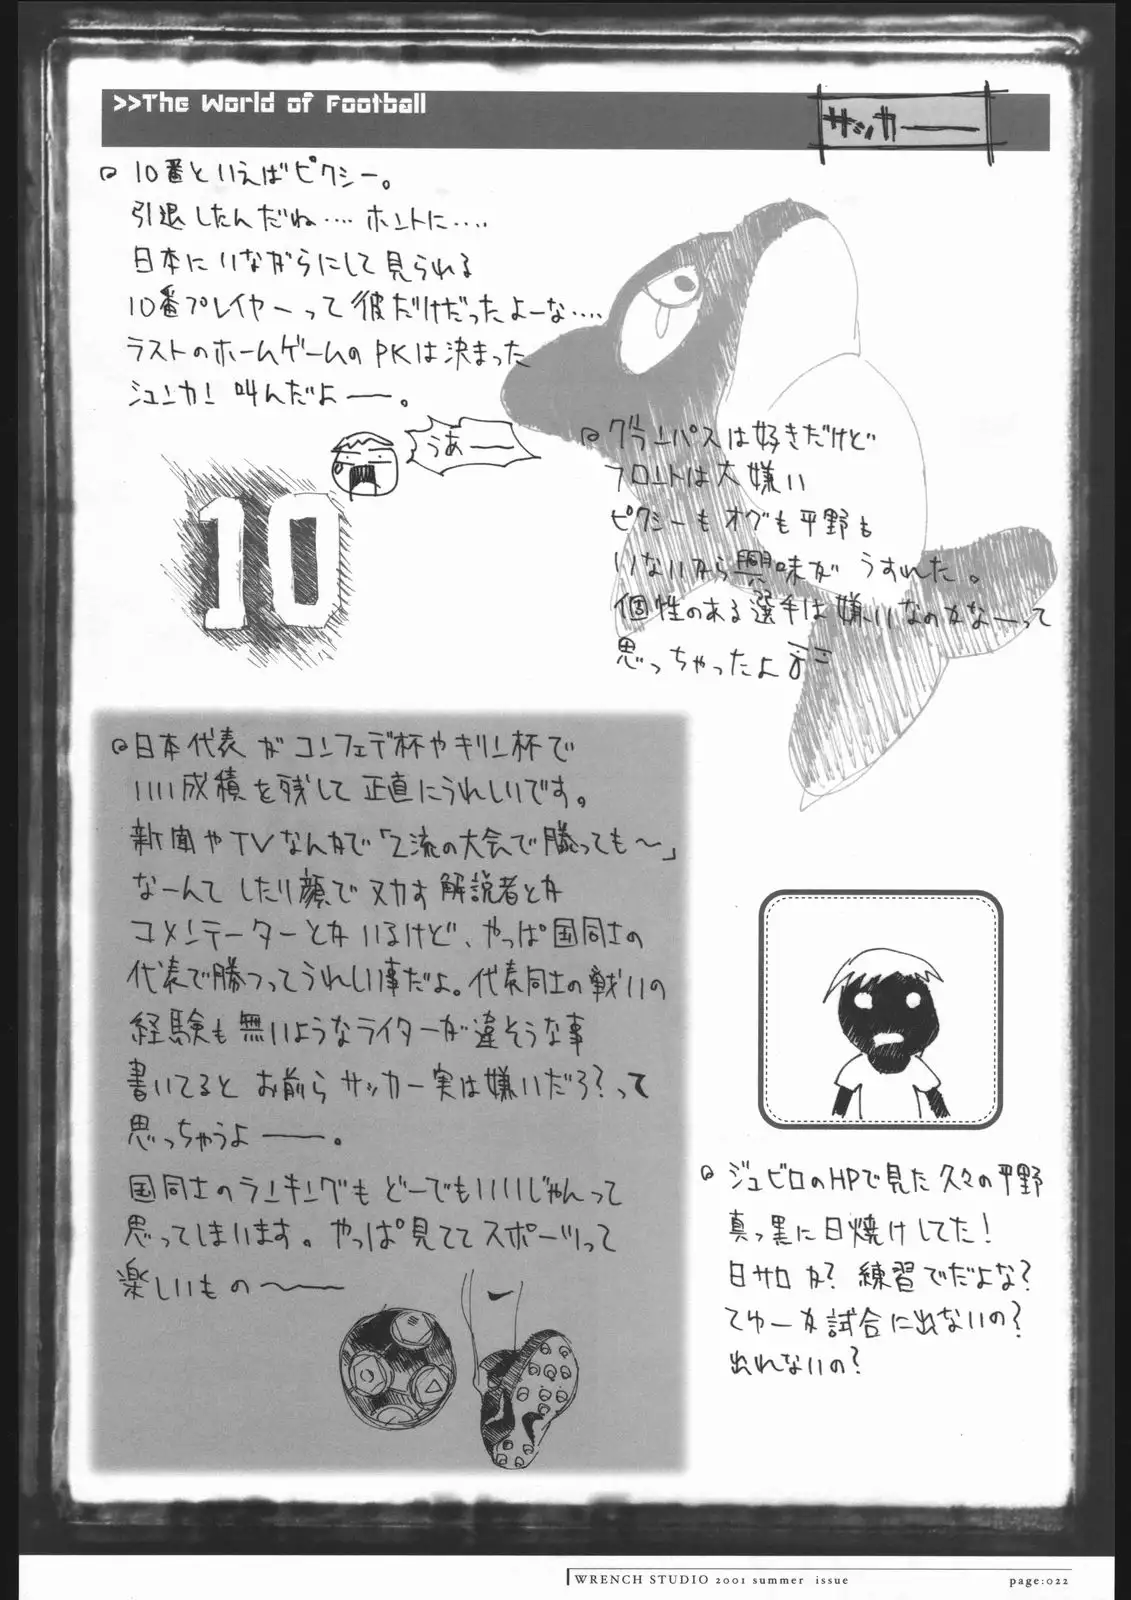 >>The World of Football
サッカー
10番といえばピクシー。
引退したんだね‥‥ ホントに‥‥
日本にいながらにして見られる
10番プレイヤーって彼だけだったよーな‥‥
ラストのホームゲームのPKは決まった
シュンカン 叫んだよ——。
うあ——
10
グランパスは好きだけど
フロントは大嫌い
ピクシーもオグも平野も
いないから興味がうすれた。
個性のある選手は嫌いなのかなーって
思っちゃったよ
日本代表がコンフェデ杯やキリン杯で
いい成積を残して正直にうれしいです。
新聞やTVなんかで「2流の大会で勝っても〜」
なーんてしたり顔でヌカす解説者とか
コメンテーターとかいるけど、やっぱ国同士の
代表で勝つってうれしい事だよ。代表同士の戦いの
経験も無いようなライターが違そうな事
書いてると お前らサッカー実は嫌いだろ?って
思っちゃうよ——。
国同士のランキングもどーでもいいじゃんって
思ってしまいます。やっぱ見ててスポーツって
楽しいもの〜——
ジュビロのHPで見た久々の平野
真っ黒に日焼けしてた!
日サロか? 練習でだよな?
てゆーか試合に出ないの?
出れないの?
WRENCH STUDIO 2001 summer issue
page:022